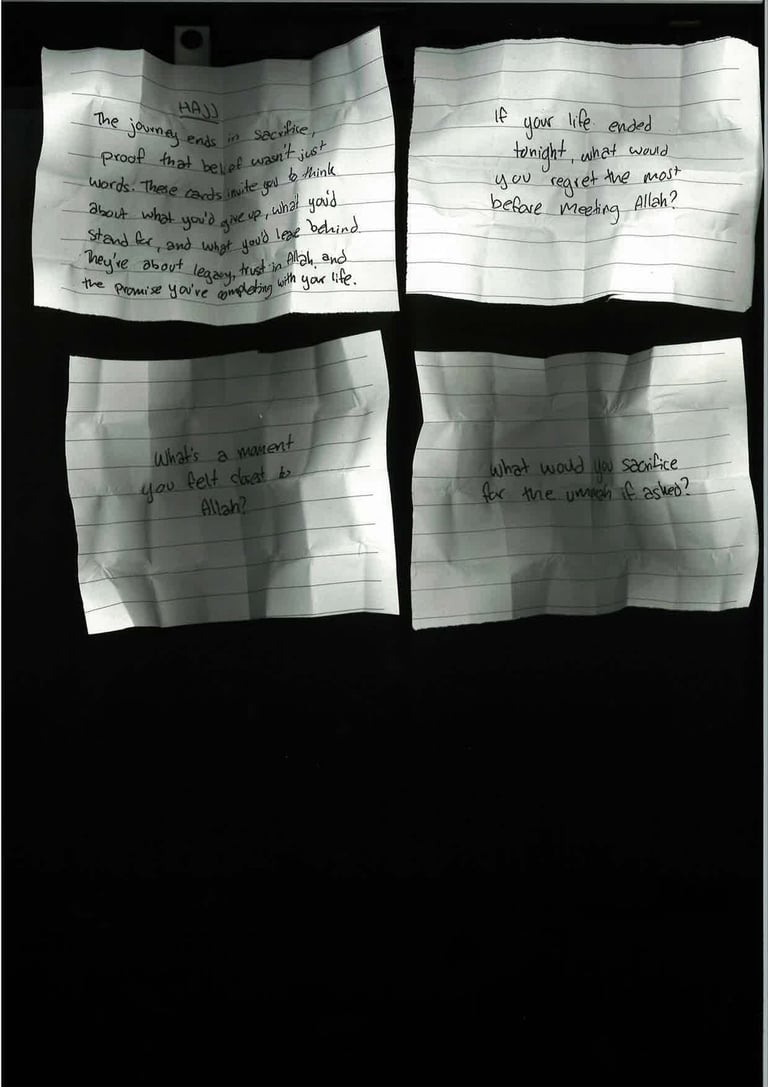 HAJJ
The journey ends in sacrifice,
proof that belief wasn't just
words. These cards invite you to think
about what you'd give up, what you'd
stand for, and what you'd leave behind.
They're about legacy, trust in Allah, and
the promise you're completing with your life.
If your life ended
tonight, what would
you regret the most
before meeting Allah?
What's a moment
you felt closest to
Allah?
What would you sacrifice
for the ummah if asked?